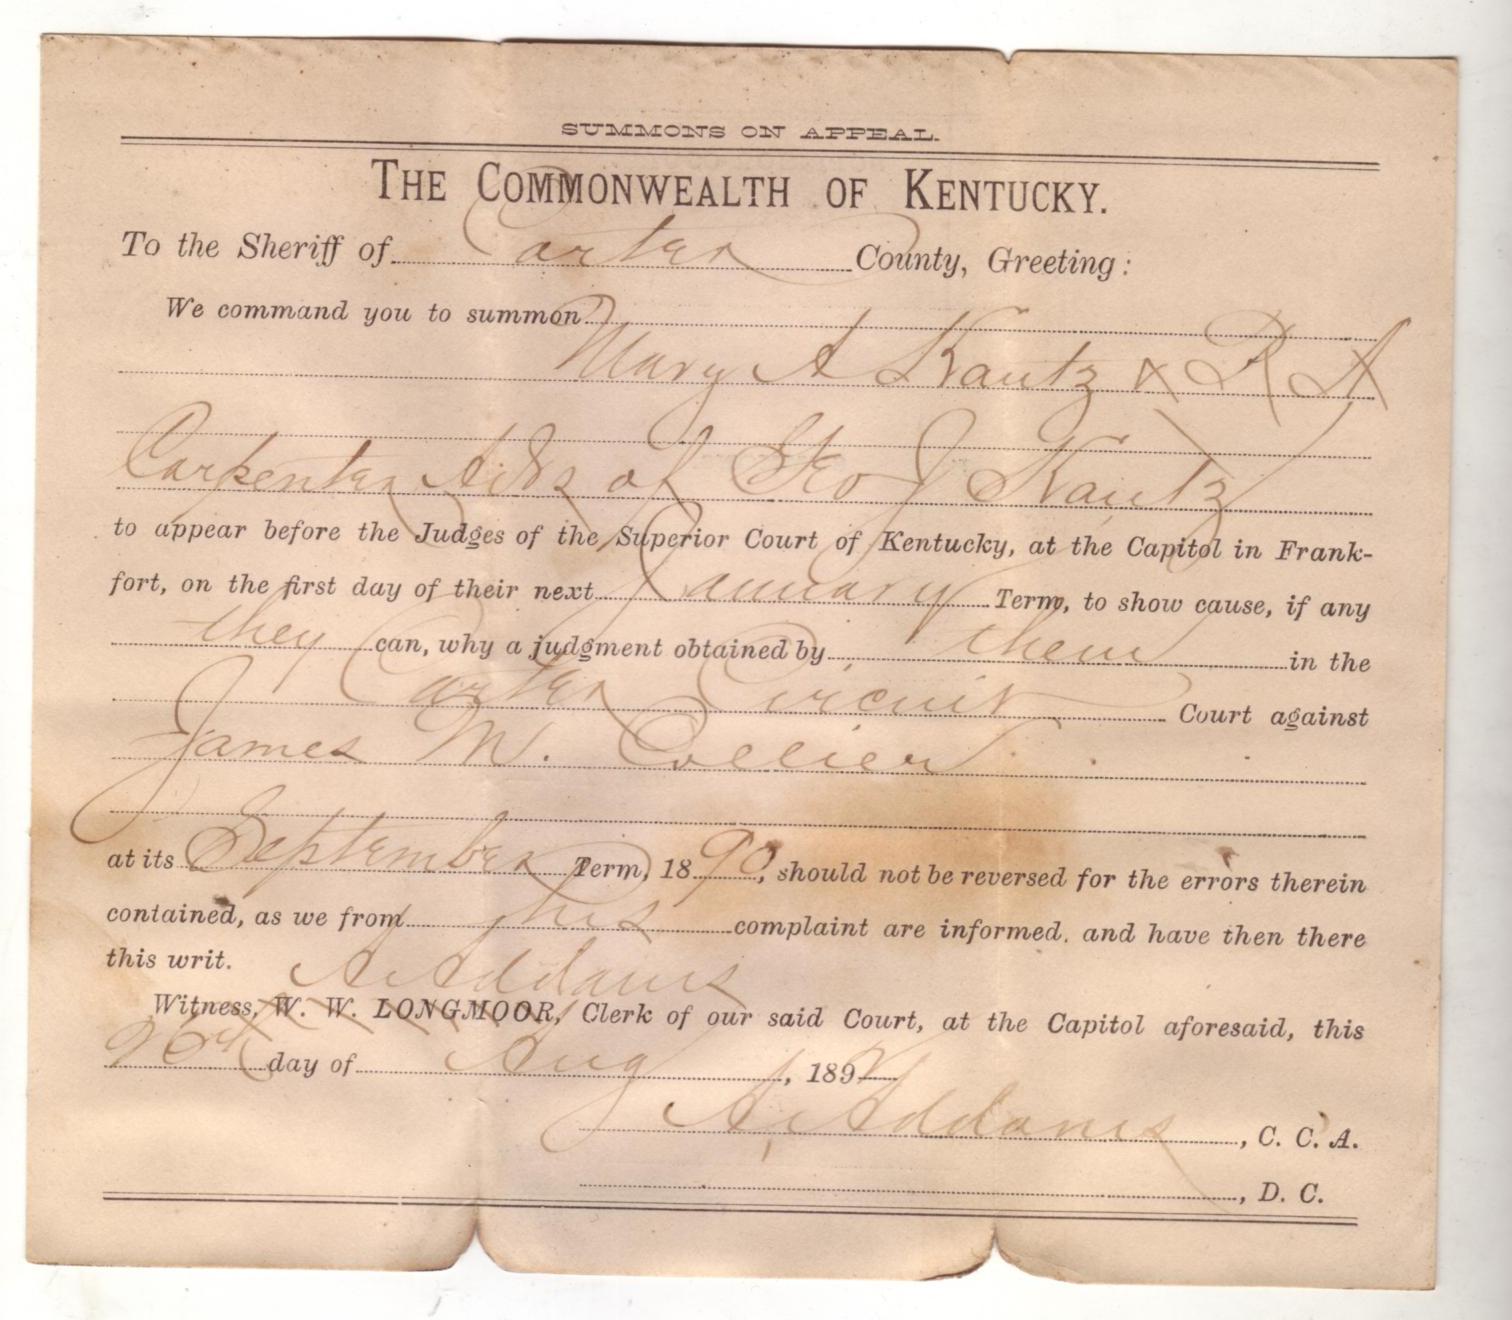 SUMMONS ON APPEAL.
THE COMMONWEALTH OF KENTUCKY.
To the Sheriff of Carter County, Greeting:
We command you to summon
Mary A Kautz & R A
Carpenter Adrs of Geo J Kautz
to appear before the Judges of the Superior Court of Kentucky, at the Capitol in Frank-
fort, on the first day of their next January Term, to show cause, if any
they can, why a judgment obtained by them in the
Carter Circuit Court against
James M. Collier
at its September Term, 1890, should not be reversed for the errors therein
contained, as we from his complaint are informed. and have then there
this writ. A. Addams
Witness, W. W. LONGMOOR, Clerk of our said Court, at the Capitol aforesaid, this
26th day of Aug, 189
A. Addams, C. C. A.
, D. C.